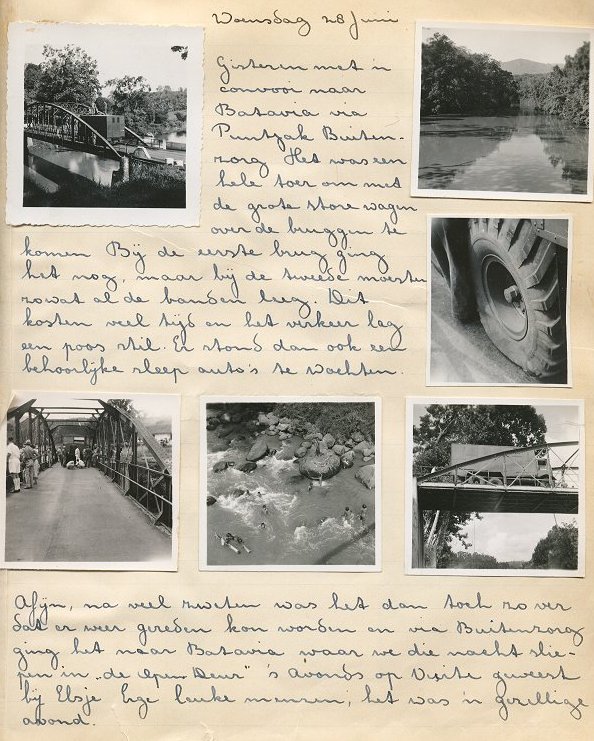 Woensdag 28 Juni
Gisteren met 'n
convooi naar
Batavia via
Puntjak Buiten-
zorg Het was een
hele toer om met
de grote store wagen
over de bruggen te
komen Bij de eerste brug ging
het nog, maar bij de tweede moesten
zowat al de banden leeg. Dit
kosten veel tijd en het verkeer lag
een poos stil. Er stond dan ook een
behoorlijke sleep auto's te wachten.
Afijn, na veel zweten was het dan toch zo ver
dat er weer gereden kon worden en via Buitenzorg
ging het naar Batavia waar we die nacht slie-
pen in "de Open Deur" 's Avonds op Visite geweest
bij Elsje leuke mensen, het was 'n gezellige
avond.